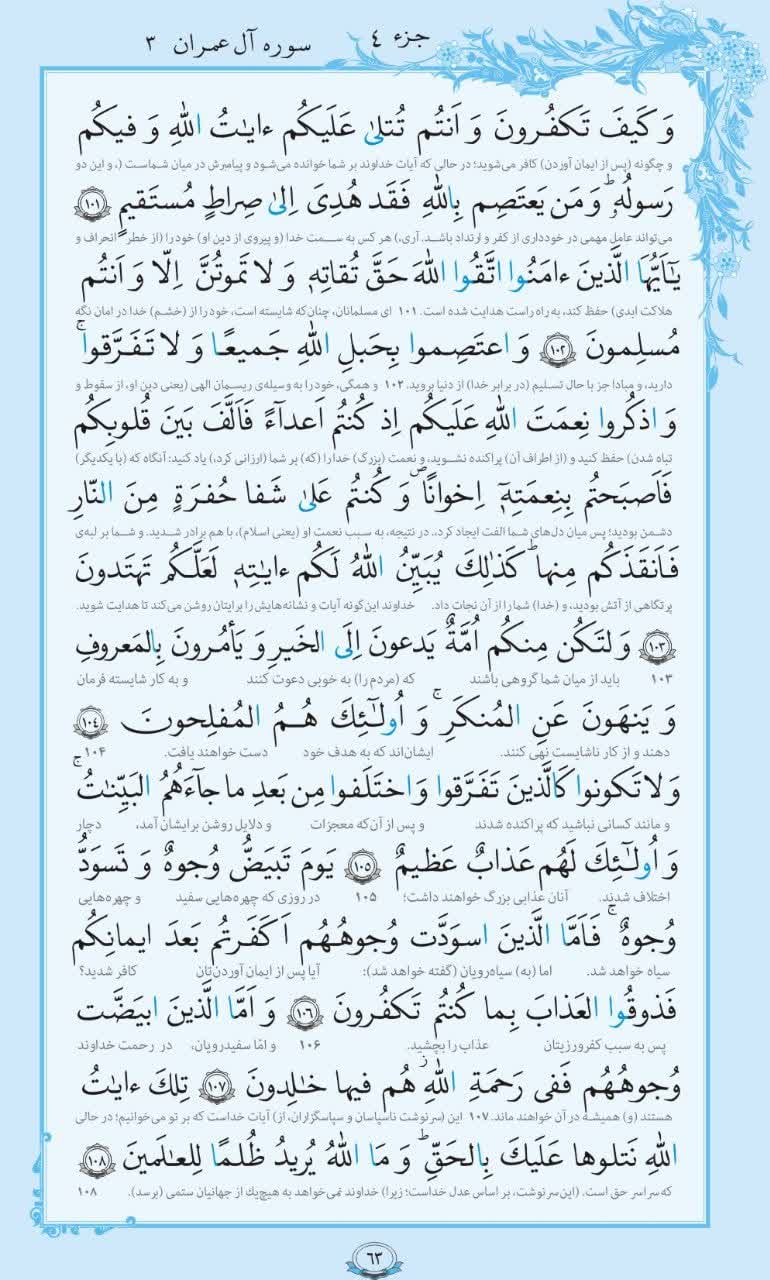 جزء ٤
سوره آل عمران ٣
وَ کَیفَ تَکفُرونَ وَ اَنتُم تُتلیٰ عَلَیکُم ءایٰتُ اللهِ وَ فیکُم
و چگونه (پس از ایمان آوردن) کافر می‌شوید؛ در حالی که آیات خداوند بر شما خوانده می‌شود و پیامبرش در میان شماست (، و این دو
رَسولُهٗ ۗ وَ مَن یَعتَصِم بِاللهِ فَقَد هُدِیَ اِلیٰ صِراطٍ مُستَقیمٍ ﴿١٠١﴾
می‌تواند عامل مهمی در خودداری از کفر و ارتداد باشد. آری،) هر کس به سمت خدا (و پیروی از دین او) خود را (از خطر انحراف و
یٰٓاَیُّهَا الَّذینَ ءامَنُوا اتَّقُوا اللهَ حَقَّ تُقاتِهٖ وَ لا تَموتُنَّ اِلّا وَ اَنتُم
هلاکت ابدی) حفظ کند، به راه راست هدایت شده است. ۱۰۱ ای مسلمانان، چنان‌که شایسته است، خود را از (خشم) خدا در امان نگه
مُسلِمونَ ﴿١٠٢﴾ وَ اعتَصِموا بِحَبلِ اللهِ جَمیعًا وَ لا تَفَرَّقوا ۚ
دارید، و مبادا جز با حال تسلیم (در برابر خدا) از دنیا بروید. ۱۰۲ و همگی، خود را به وسیله‌ی ریسمان الهی (یعنی دین او، از سقوط و
وَ اذکُروا نِعمَتَ اللهِ عَلَیکُم اِذ کُنتُم اَعدآءً فَاَلَّفَ بَینَ قُلوبِکُم
تباه شدن) حفظ کنید و (از اطراف آن) پراکنده نشوید، و نعمت (بزرگ) خدا را (که) بر شما (ارزانی کرد،) یاد کنید: آنگاه که (با یکدیگر)
فَاَصبَحتُم بِنِعمَتِهٖٓ اِخوانًا ۖ وَ کُنتُم عَلیٰ شَفا حُفرَةٍ مِنَ النّارِ
دشمن بودید؛ پس میان دل‌های شما الفت ایجاد کرد.، در نتیجه، به سبب نعمت او (یعنی اسلام)، با هم برادر شدید. و شما بر لبه‌ی
فَاَنقَذَکُم مِنها ۗ کَذٰلِكَ یُبَیِّنُ اللهُ لَکُم ءایٰتِهٖ لَعَلَّکُم تَهتَدونَ
پرتگاهی از آتش بودید، و (خدا) شما را از آن نجات داد. خداوند این‌گونه آیات و نشانه‌هایش را برایتان روشن می‌کند تا هدایت شوید.
﴿١٠٣﴾ وَلتَکُن مِنکُم اُمَّةٌ یَدعونَ اِلَی الخَیرِ وَ یَأمُرونَ بِالمَعروفِ
۱۰۳ باید از میان شما گروهی باشند که (مردم را) به خوبی دعوت کنند و به کار شایسته فرمان
وَ یَنهَونَ عَنِ المُنکَرِ ۚ وَ اُولٰٓئِكَ هُمُ المُفلِحونَ ﴿١٠٤﴾
دهند و از کار ناشایست نهی کنند. ایشان‌اند که به هدف خود دست خواهند یافت. ۱۰۴
وَ لا تَکونوا کَالَّذینَ تَفَرَّقوا وَ اختَلَفوا مِن بَعدِ ما جآءَهُمُ البَیِّنٰتُ ۚ
و مانند کسانی نباشید که پراکنده شدند و پس از آن‌که معجزات و دلایل روشن برایشان آمد، دچار
وَ اُولٰٓئِكَ لَهُم عَذابٌ عَظیمٌ ﴿١٠٥﴾ یَومَ تَبیَضُّ وُجوهٌ وَ تَسوَدُّ
اختلاف شدند. آنان عذابی بزرگ خواهند داشت؛ ۱۰۵ در روزی که چهره‌هایی سفید و چهره‌هایی
وُجوهٌ ۚ فَاَمَّا الَّذینَ اسوَدَّت وُجوهُهُم اَکَفَرتُم بَعدَ ایمانِکُم
سیاه خواهد شد. اما (به) سیاه‌رویان (گفته خواهد شد): آیا پس از ایمان آوردن‌تان کافر شدید؟
فَذوقُوا العَذابَ بِما کُنتُم تَکفُرونَ ﴿١٠٦﴾ وَ اَمَّا الَّذینَ ابیَضَّت
پس به سبب کفرورزیتان عذاب را بچشید. ۱۰۶ و امّا سفیدرویان، در رحمت خداوند
وُجوهُهُم فَفی رَحمَةِ اللهِ ۖ هُم فیها خٰلِدونَ ﴿١٠٧﴾ تِلكَ ءایٰتُ
هستند (و) همیشه در آن خواهند ماند. ۱۰۷ این (سرنوشت ناسپاسان و سپاسگزاران، از) آیات خداست که بر تو می‌خوانیم؛ در حالی
اللهِ نَتلوها عَلَیكَ بِالحَقِّ ۗ وَ مَا اللهُ یُریدُ ظُلمًا لِلعٰلَمینَ ﴿١٠٨﴾
که سراسر حق است. (این سرنوشت، بر اساس عدل خداست؛ زیرا) خداوند نمی‌خواهد به هیچ‌یك از جهانیان ستمی (برسد). ۱۰۸
٦٣